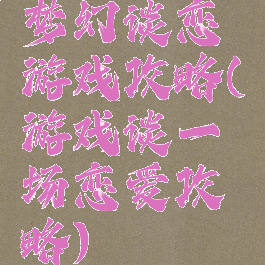 梦幻谈恋
游戏攻略(
游戏谈一
场恋爱攻
略)